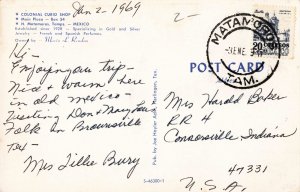 Jan 2 - 1969
2-
COLONIAL CURIO SHOP
Main Plaza - Box 54
H. Matamoros, Tamps. - MEXICO
Established since 1928 - Specializing in Gold and Silver
Jewelry - French and Spanish Perfumes
Owned by
MATAMOROS
3 ENE.
TAM.
20
POST CARD
Hi-
Enjoying our trip-
Nice & warm here
in old mexico-
visiting Don & Mary
Folk in Brownsville
Tex-
Mrs Tillie Bury
Mrs Harold Baker
RR 4
Connersville Indiana
47331
U.S.A.
Pub. by Joe Harlingen, Texas
S-46300-1